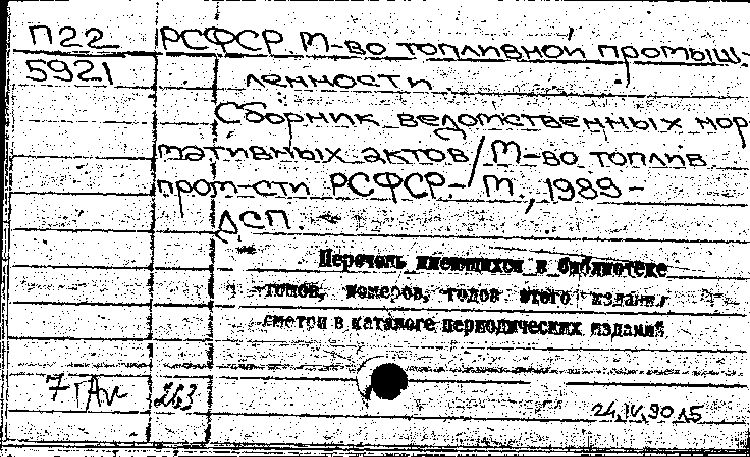 П22 РСФСР. М-во топливной промыш-
5921 ленности.
Сборник ведомственных нор
мативных актов / М-во топлив
пром-сти РСФСР.- М., 1989-
ДСП.
Перечень имеющихся в библиотеке
томов, номеров, годов этого издания
смотри в каталоге периодических изданий
263
24.IV.90